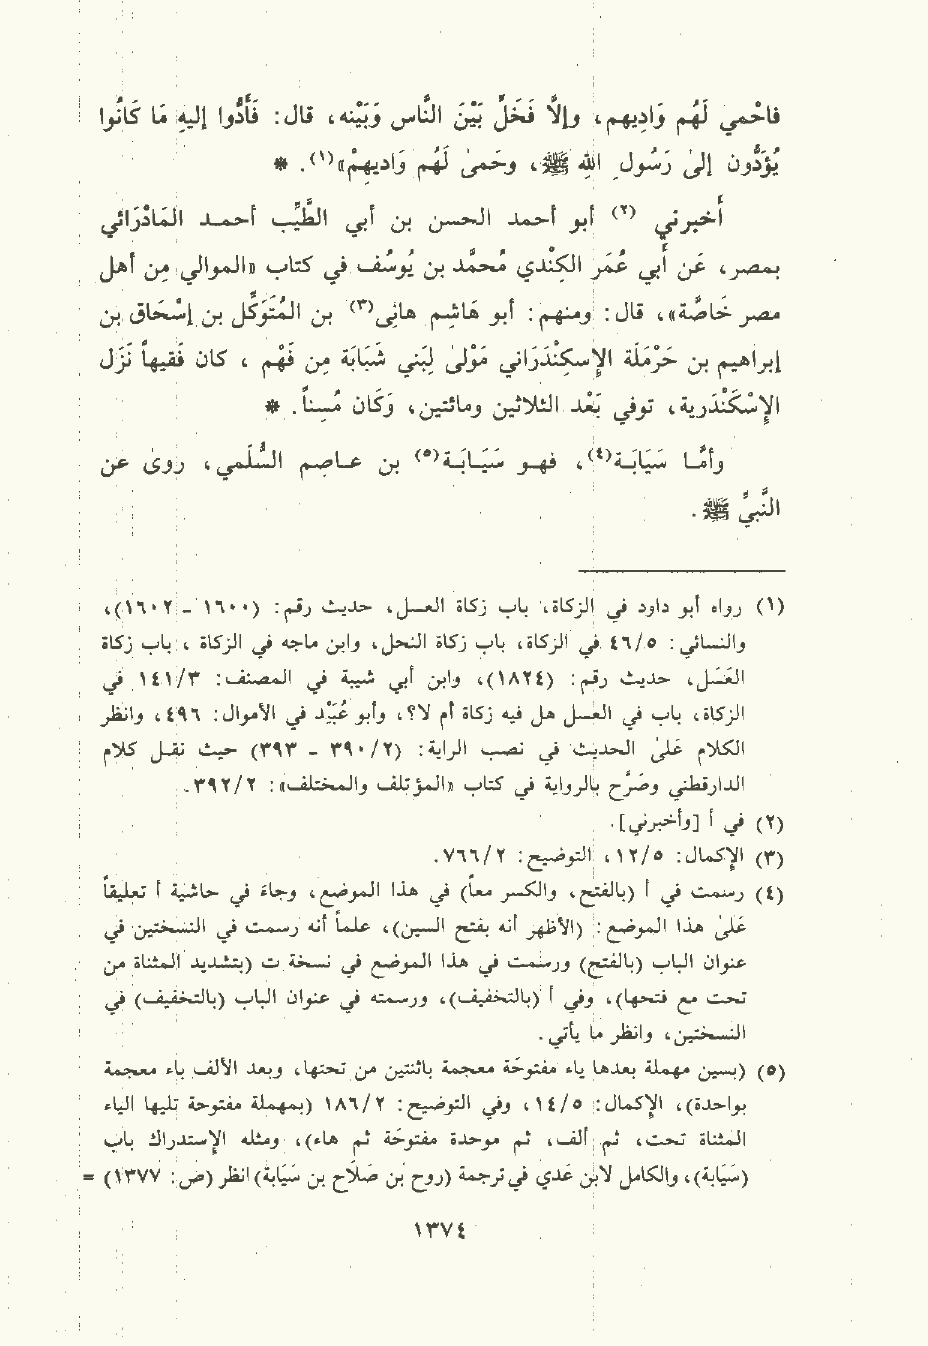 فاحْمي لَهُم وَادِيهم، وإلاَّ فَخَلِّ بَيْنَ النَّاس وَبَيْنه، قال: فَأَدُّوا إليهِ مَا كَانُوا
يُؤَدُّون إلىٰ رَسُولِ اللهِ ﷺ، وحَمىٰ لَهُم وَاديهمْ»(١). *
أَخبرني (٢) أبو أحمد الحسن بن أبي الطَّيِّب أحمد المَاذْرَائي
بمصر، عَن أبي عُمَر الكِنْدي مُحمَّد بن يُوسُف في كتاب «الموالي مِن أهل
مصر خَاصَّة»، قال: ومنهم: أبو هَاشِم هانِى(٣) بن المُتَوَكِّل بن إسْحَاق بن
إبراهيم بن حَرْمَلَة الإسكِنْدَرَاني مَوْلىٰ لِبَني شَبَابَة مِن فَهْم ، كان فَقيهاً نَزَل
الإسْكَنْدَرية، توفي بَعْد الثلاثين ومائتين، وَكَان مُسِناً. *
وأمَّا سَيَابَة(٤)، فهو سَيَابَة(٥) بن عاصم السُّلَمي، روىٰ عن
النَّبيِّ ﷺ.
(١) رواه أبو داود في الزكاة، باب زكاة العسل، حديث رقم: (١٦٠٠ - ١٦٠٢)،
والنسائي: ٤٦/٥ في الزكاة، باب زكاة النحل، وابن ماجه في الزكاة ، باب زكاة
العَسَل، حديث رقم: (١٨٢٤)، وابن أبي شيبة في المصنف: ١٤١/٣ في
الزكاة، باب في العسل هل فيه زكاة أم لا؟، وأبو عُبَيْد في الأموال: ٤٩٦، وانظر
الكلام عَلىٰ الحديث في نصب الراية: (٣٩٠/٢ - ٣٩٣) حيث نقل كلام
الدارقطني وصَرَّح بالرواية في كتاب «المؤتلف والمختلف»: ٣٩٢/٢.
(٢) في أ [وأخبرني].
(٣) الإكمال: ١٢/٥، التوضيح: ٧٦٦/٢.
(٤) رسمت في أ (بالفتح، والكسر معاً) في هذا الموضع، وجاءَ في حاشية أ تعليقاً
عَلىٰ هذا الموضع: (الأظهر أنه بفتح السين)، علماً أنه رسمت في النسختين في
عنوان الباب (بالفتح) ورسمت في هذا الموضع في نسخة ت (بتشديد المثناة من
تحت مع فتحها)، وفي أ (بالتخفيف)، ورسمته في عنوان الباب (بالتخفيف) في
النسختين، وانظر ما يأتي.
(٥) (بسين مهملة بعدها ياء مفتوحَة معجمة باثنتين من تحتها، وبعد الألف باء معجمة
بواحدة)، الإكمال: ١٤/٥، وفي التوضيح: ١٨٦/٢ (بمهملة مفتوحة تليها الياء
المثناة تحت، ثم ألف، ثم موحدة مفتوحَة ثم هاء)، ومثله الإستدراك باب
(سَيَابة)، والكامل لابن عَدي في ترجمة (روح بن صَلاَح بن سَيَابة) انظر (ص: ١٣٧٧) =
١٣٧٤